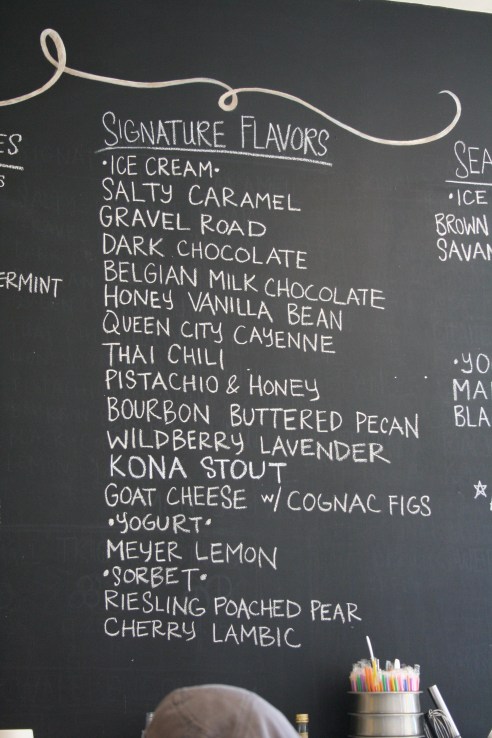 SIGNATURE FLAVORS
•ICE CREAM•
SALTY CARAMEL
GRAVEL ROAD
DARK CHOCOLATE
BELGIAN MILK CHOCOLATE
HONEY VANILLA BEAN
QUEEN CITY CAYENNE
THAI CHILI
PISTACHIO & HONEY
BOURBON BUTTERED PECAN
WILDBERRY LAVENDER
KONA STOUT
GOAT CHEESE w/ COGNAC FIGS
•YOGURT•
MEYER LEMON
•SORBET•
RIESLING POACHED PEAR
CHERRY LAMBIC
ES
S
ERMINT
SEA
•ICE
BROWN
SAVAN
•YO
MA
BLA